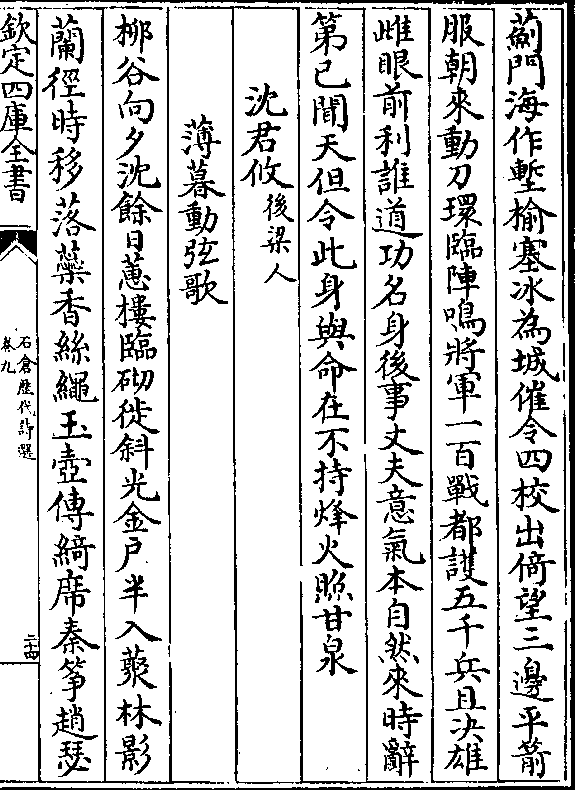 薊門海作塹榆塞冰為城催令四校出倚望三邊平箭
服朝來動刀環臨陣鳴將軍一百戰都護五千兵且決雄
雌眼前利誰道功名身後事丈夫意氣本自然來時辭
第已聞天但令此身與命在不持烽火照甘泉
沈君攸後梁人
薄暮動弦歌
柳谷向夕沈餘日蕙樓臨砌徙斜光金户半入藂林影
蘭徑時移落蘂香絲繩玉壺傳綺席秦筝趙瑟
欽定四庫全書
石倉歴代詩選
卷九
二十四